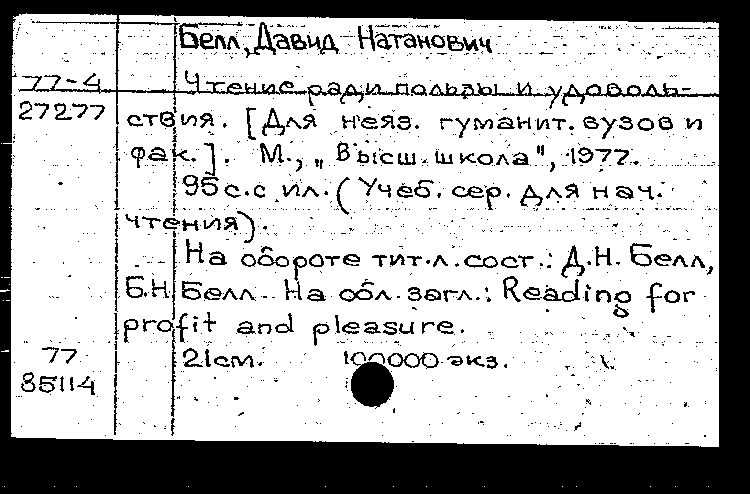 Белл, Давид Натанович
77-4 Чтение ради пользы и удоволь-
27277 ствия. [Для неяз. гуманит. вузов и
фак.]. М., „Высш. школа", 1977.
95 с. с ил. (Учеб. сер. для нач.
чтения).
На обороте тит. л. сост.: Д.Н. Белл,
Б.Н. Белл. На обл. загл.: Reading for
profit and pleasure.
77 21см. 100000 экз.
85114